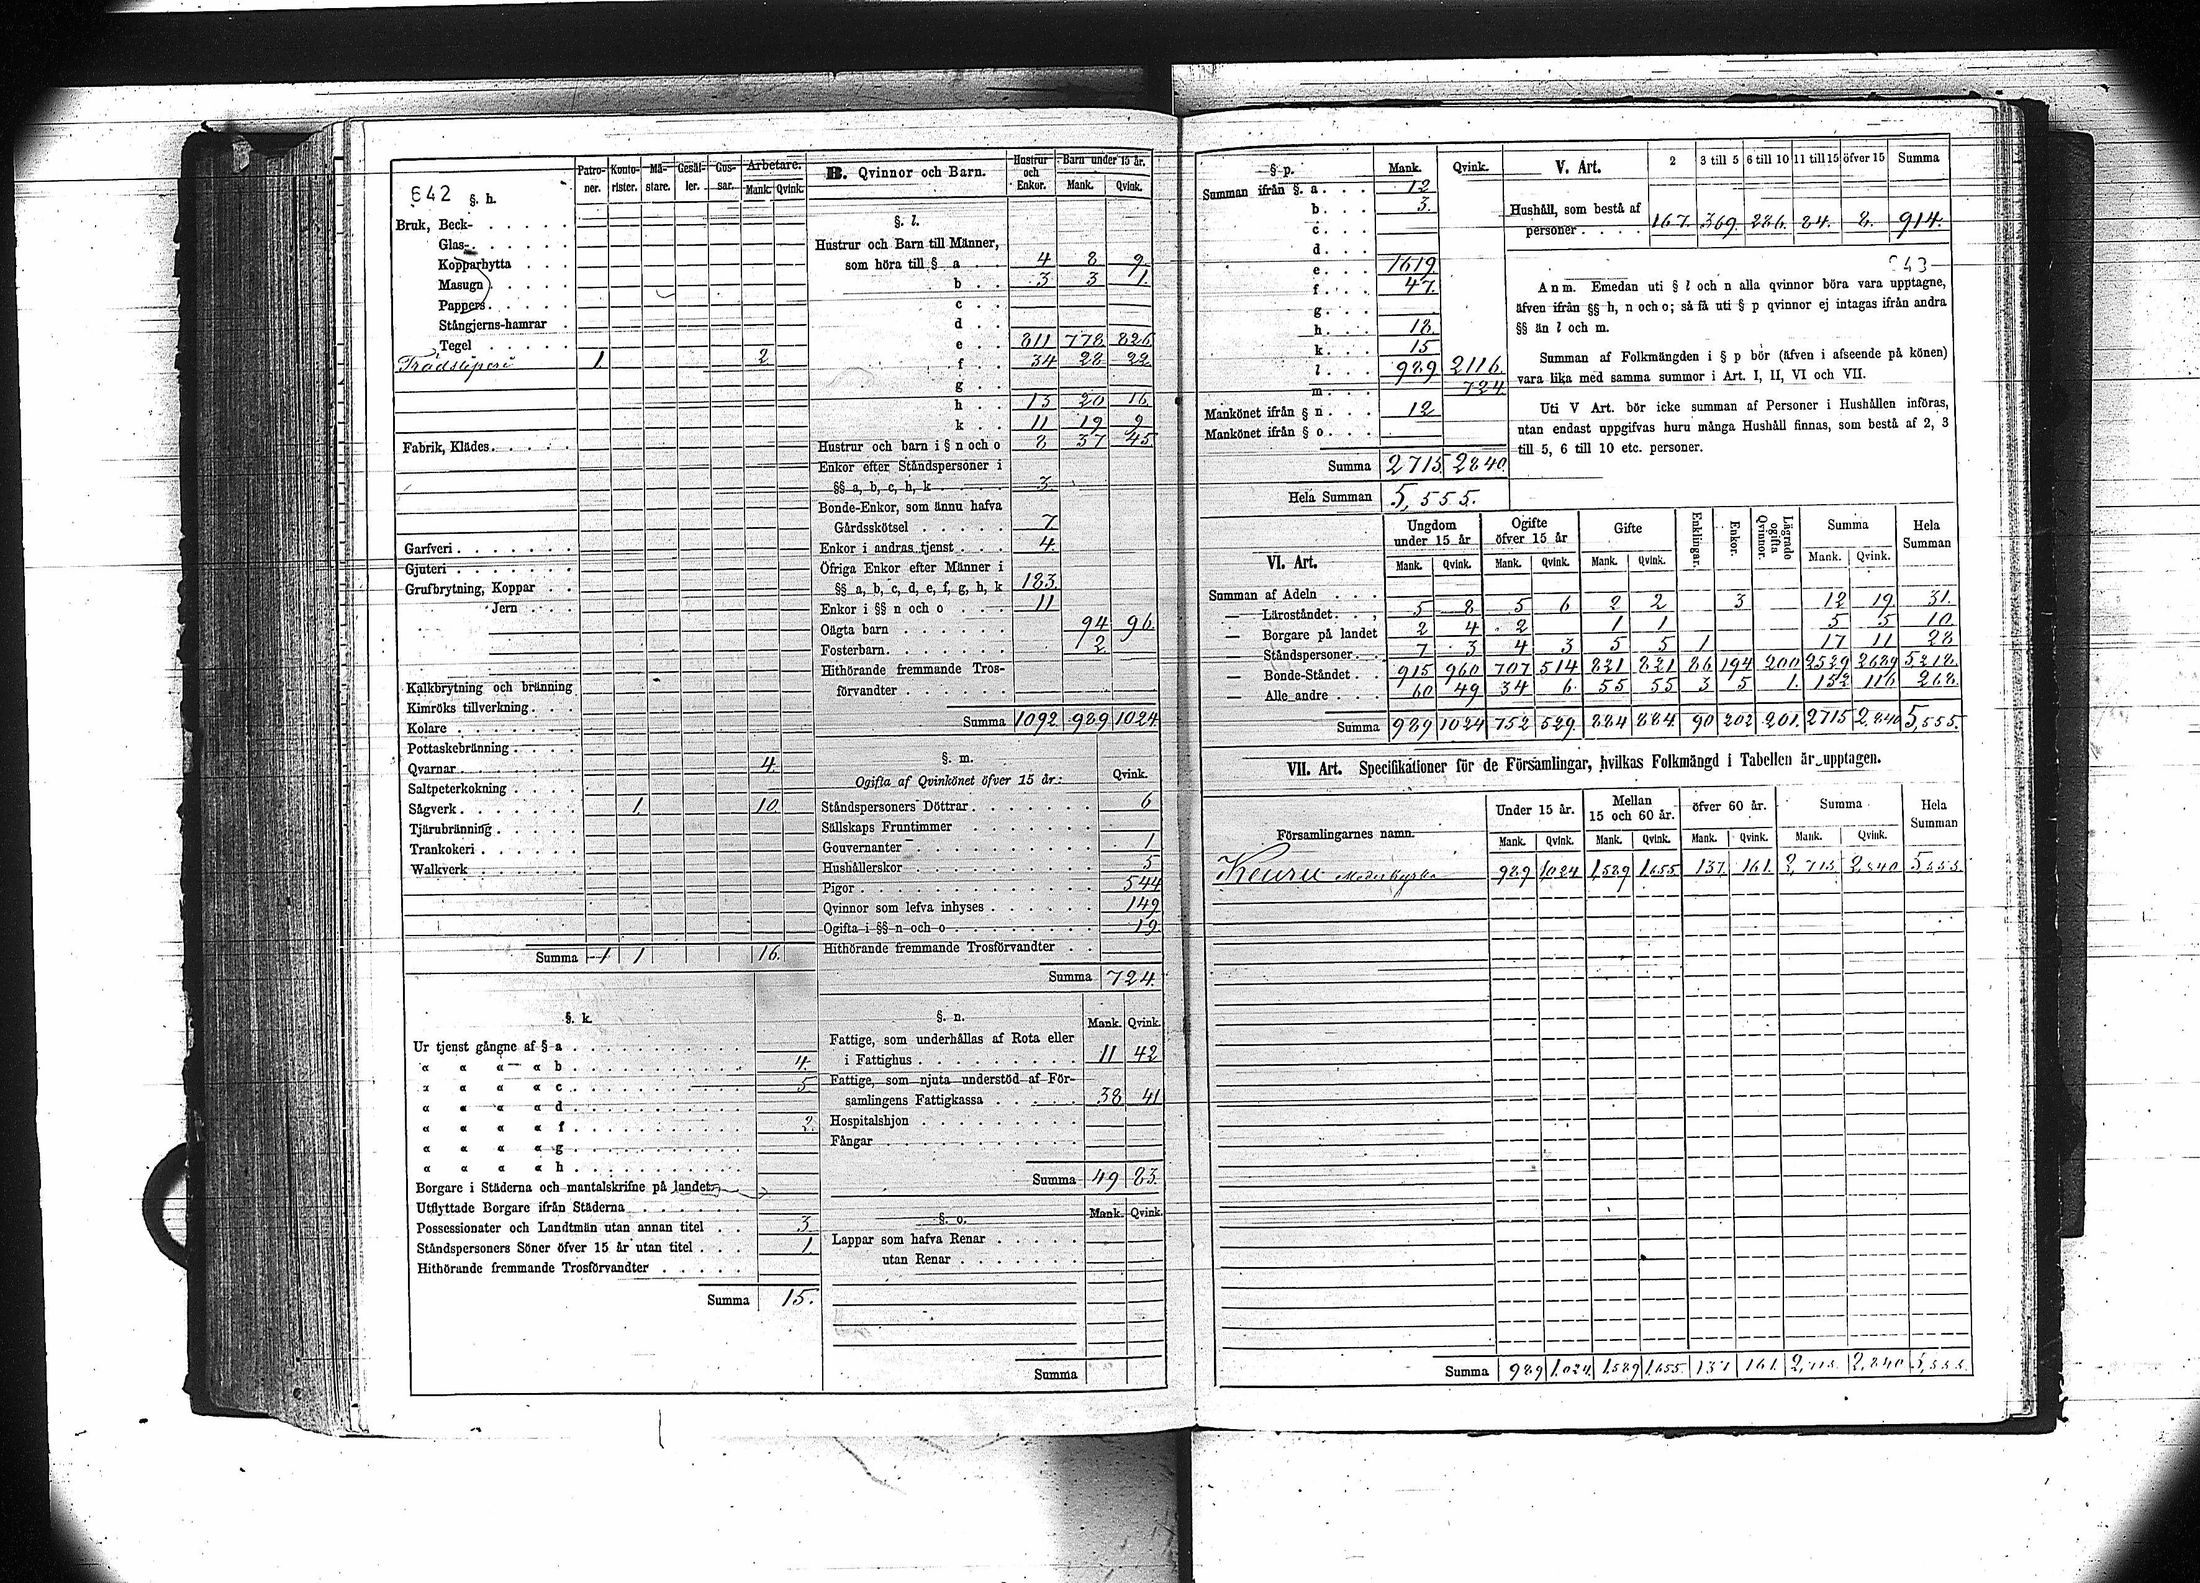 642 §. h.
Patro- Konto- Mä- Gesäl- Gos- Arbetare.
ner. rister. stare. ler. sar. Mank. Qvink.
Bruk, Beck- . . . . .
Glas- . . . . .
Kopparhytta . . .
Masugn . . . . .
Pappers . . . . .
Stångjerns-hamrar .
Tegel . . . . .
Trädsliperi 1 2
Fabrik, Klädes. . . . .
Garfveri . . . . . .
Gjuteri . . . . . .
Grufbrytning, Koppar . .
Jern . . .
Kalkbrytning och bränning
Kimröks tillverkning . . .
Kolare . . . . . .
Pottaskebränning . . . .
Qvarnar . . . . . . 4.
Saltpeterkokning . . . .
Sågverk . . . . . . 1. 10.
Tjärubränning . . . . .
Trankokeri . . . . . .
Walkverk . . . . . .
Summa 1 1 16.
§. k.
Ur tjenst gångne af § a . . . . . .
« « « « b . . . . . . 4.
« « « « c . . . . . . 5.
« « « « d . . . . . .
« « « « f . . . . . . 2.
« « « « g . . . . . .
« « « « h . . . . . .
Borgare i Städerna och mantalskrifne på landet
Utflyttade Borgare ifrån Städerna . . . . .
Possessionater och Landtmän utan annan titel . . 3.
Ståndspersoners Söner öfver 15 år utan titel . . . 1.
Hithörande fremmande Trosförvandter . . . . .
Summa 15.
B. Qvinnor och Barn. Hustrur och Enkor. Barn under 15 år. Mank. Qvink.
§. l.
Hustrur och Barn till Männer,
som höra till § a . . 4 8 9.
b . . 3 3 1.
c . .
d . .
e . . 811 778. 826.
f . . 34 28 22.
g . .
h . . 13 20 16.
k . . 11 19 9
Hustrur och barn i § n och o 8 37 45.
Enkor efter Ståndspersoner i
§§ a, b, c, h, k 3.
Bonde-Enkor, som ännu hafva
Gårdsskötsel . . . . . 7
Enkor i andras tjenst . . . 4.
Öfriga Enkor efter Männer i
§§ a, b, c, d, e, f, g, h, k 183.
Enkor i §§ n och o . . . 11
Oägta barn . . . . . . 94 96.
Fosterbarn . . . . . . 2.
Hithörande fremmande Tros-
förvandter . . . . . .
Summa 1092. 989. 1024.
§. m.
Ogifta af Qvinkönet öfver 15 år: Qvink.
Ståndspersoners Döttrar . . . . . . 6
Sällskaps Fruntimmer . . . . . .
Gouvernanter . . . . . . 1
Hushållerskor . . . . . . 5
Pigor . . . . . . 544
Qvinnor som lefva inhyses . . . . . . 149.
Ogifta i §§ n och o . . . . . . 19.
Hithörande fremmande Trosförvandter . .
Summa 724.
§. n. Mank. Qvink.
Fattige, som underhållas af Rota eller
i Fattighus . . . . . . 11 42
Fattige, som njuta understöd af För-
samlingens Fattigkassa . . . . . 38. 41.
Hospitalshjon . . . . . .
Fångar . . . . . .
Summa 49 83.
§. o. Mank. Qvink.
Lappar som hafva Renar . . . . .
utan Renar . . . . . .
Summa
§ p. Mank. Qvink.
Summan ifrån §. a. . . . 12
b. . . . 3.
c. . . .
d. . . .
e. . . . 1619.
f. . . . 47.
g. . . .
h. . . . 18.
k. . . . 15
l. . . . 989 2116.
m. . . . 724
Mankönet ifrån § n. . . . 12
Mankönet ifrån § o. . . .
Summa 2715. 2840.
Hela Summan 5,555.
V. Art. 2 3 till 5 6 till 10 11 till 15 öfver 15 Summa
Hushåll, som bestå af
personer . . . . 167. 369. 286. 84. 8. 914.
43
Anm. Emedan uti § l och n alla qvinnor böra vara upptagne,
äfven ifrån §§ h, n och o; så få uti § p qvinnor ej intagas ifrån andra
§§ än l och m.
Summan af Folkmängden i § p bör (äfven i afseende på könen)
vara lika med samma summor i Art. I, II, VI och VII.
Uti V Art. bör icke summan af Personer i Hushållen införas,
utan endast uppgifvas huru många Hushåll finnas, som bestå af 2, 3
till 5, 6 till 10 etc. personer.
VI. Art. Ungdom under 15 år Ogifte öfver 15 år Gifte Enklingar. Enkor. Lägrade ogifta Qvinnor. Summa Hela Summan
Mank. Qvink. Mank. Qvink. Mank. Qvink. Mank. Qvink.
Summan af Adeln . . .
— Läroståndet . . . 5 8 5 6 2 2 3 12 19. 31.
— Borgare på landet 2 4 2 1 1 5 5 10
— Ståndspersoner . . 7 3 4 3 5 5 1 17 11 28
— Bonde-Ståndet . . 915 960 707 514 821 821 86 194 200 2529 2689 5218.
— Alle andre . . . 60 49 34 6. 55 55 3 5 1. 152 116 268.
Summa 989 1024 752 529. 884 884 90 202 201. 2715 2,840 5,555.
VII. Art. Specifikationer för de Församlingar, hvilkas Folkmängd i Tabellen är upptagen.
Församlingarnes namn. Under 15 år. Mellan 15 och 60 år. öfver 60 år. Summa Hela Summan
Mank. Qvink. Mank. Qvink. Mank. Qvink. Mank. Qvink.
Keuru Moderkyrka 989 1,024 1,589 1,655 137. 161. 2,715 2,840 5,555.
Summa 989 1,024. 1,589 1,655. 137 161. 2,715. 2,840 5,555.